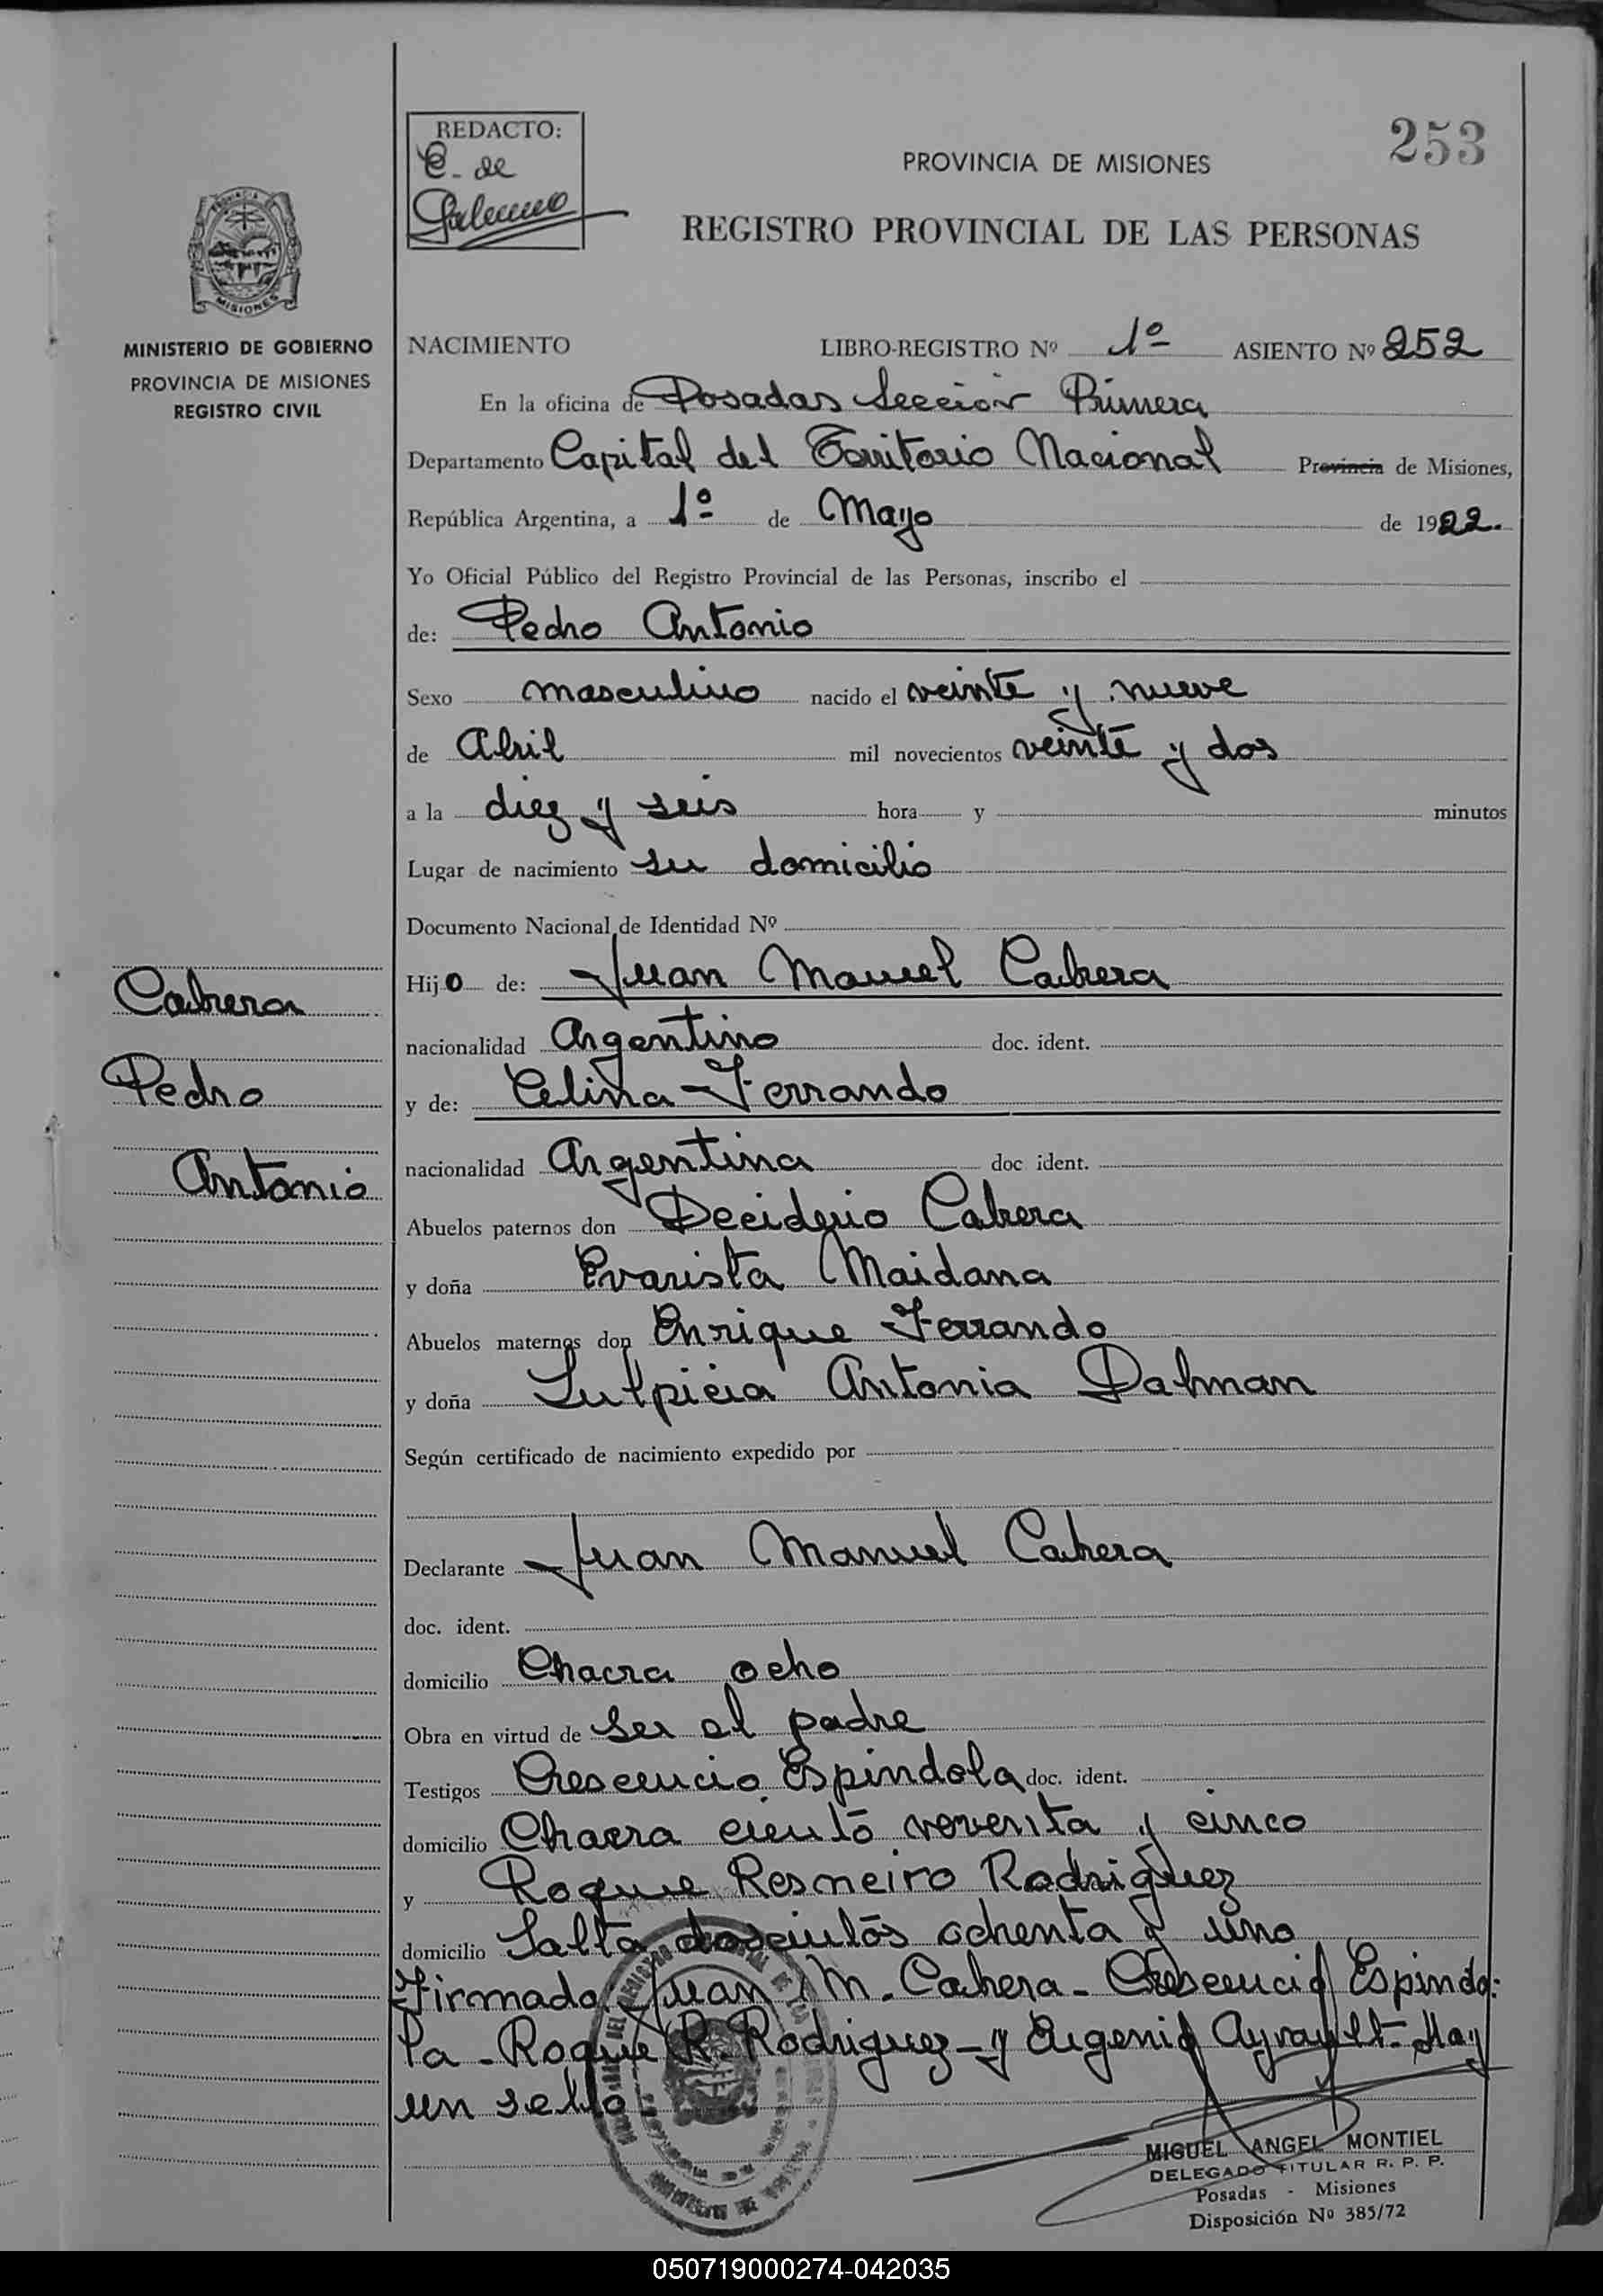 253
REDACTO:
C. de
Galeano
PROVINCIA DE MISIONES
REGISTRO PROVINCIAL DE LAS PERSONAS
MISIONES
MINISTERIO DE GOBIERNO
PROVINCIA DE MISIONES
REGISTRO CIVIL
NACIMIENTO LIBRO-REGISTRO Nº 1º ASIENTO Nº 252
En la oficina de Posadas Sección Primera
Departamento Capital del Territorio Nacional Provincia de Misiones,
República Argentina, a 1º de Mayo de 1922.
Yo Oficial Público del Registro Provincial de las Personas, inscribo el
de: Pedro Antonio
Sexo masculino nacido el veinte y nueve
de Abril mil novecientos veinte y dos
a la diez y seis hora y minutos
Lugar de nacimiento su domicilio
Documento Nacional de Identidad Nº
Hijo de: Juan Manuel Cabrera
nacionalidad Argentino doc. ident.
y de: Celina Ferrando
nacionalidad Argentina doc ident.
Abuelos paternos don Deciderio Cabrera
y doña Evarista Maidana
Abuelos maternos don Enrique Ferrando
y doña Sulpicia Antonia Dalman
Según certificado de nacimiento expedido por
Declarante Juan Manuel Cabrera
doc. ident.
domicilio Chacra ocho
Obra en virtud de ser el padre
Testigos Crescencio Espindola doc. ident.
domicilio Chacra ciento noventa y cinco
y Roque Rodriguez
domicilio Salta doscientos ochenta y uno
Firmado Juan M. Cabrera - Crescencio Espindo-
la - Roque R. Rodriguez - y Eugenio Ayrault - Hay
un sello
Cabrera
Pedro
Antonio
MIGUEL ANGEL MONTIEL
DELEGADO TITULAR R. P. P.
Posadas - Misiones
Disposición Nº 385/72
050719000274-042035